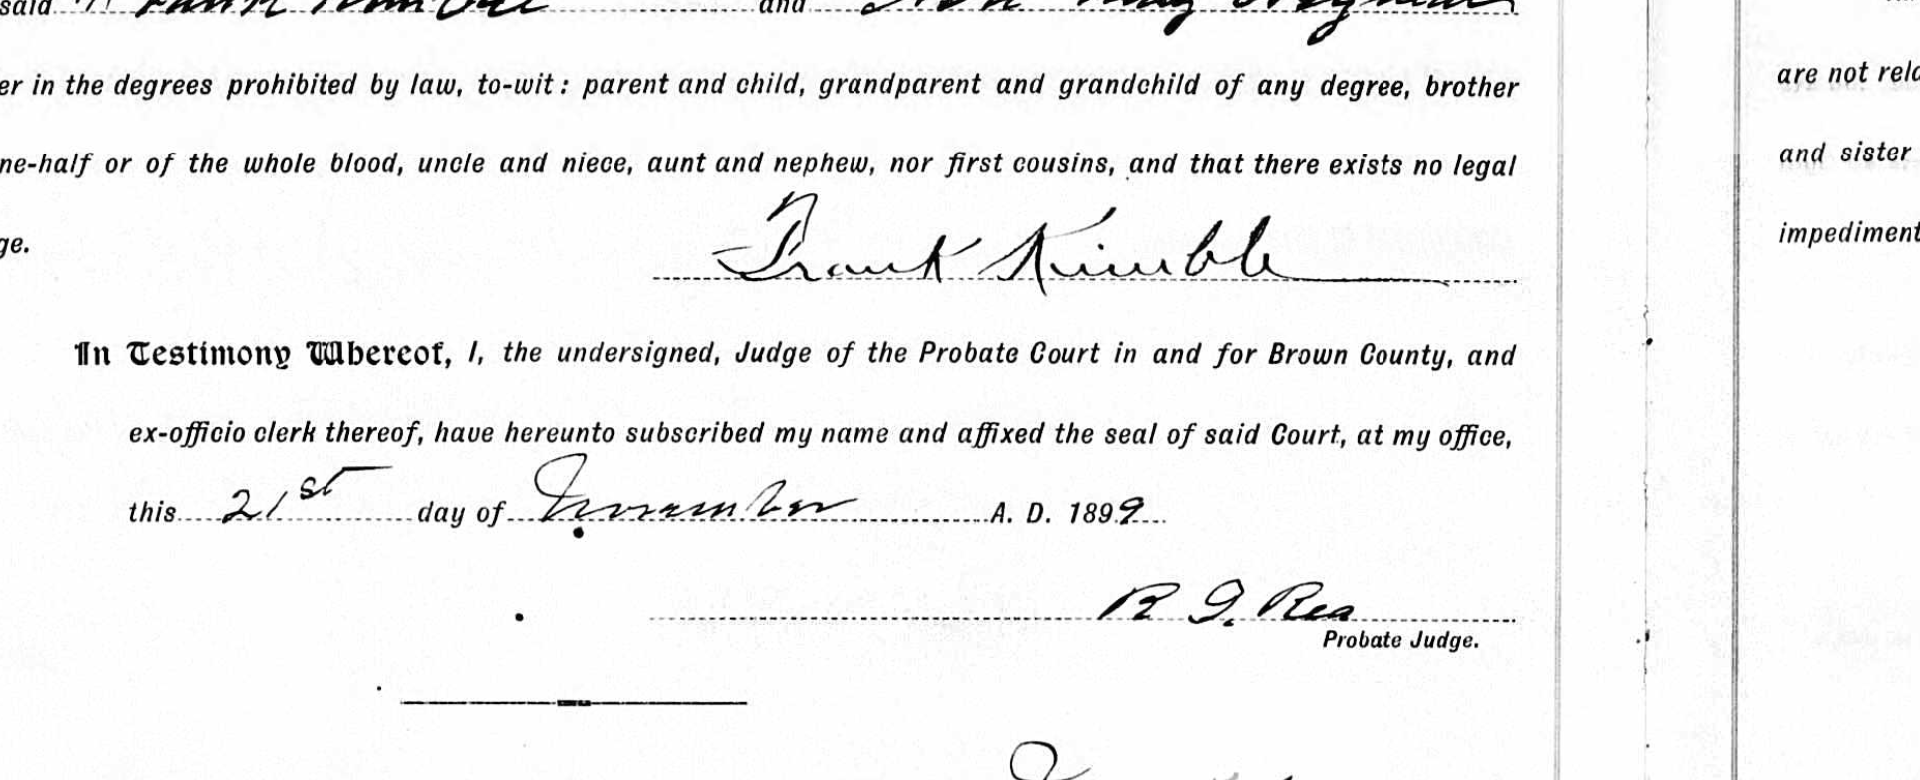 said Frank Kimble and May
er in the degrees prohibited by law, to-wit: parent and child, grandparent and grandchild of any degree, brother
ne-half or of the whole blood, uncle and niece, aunt and nephew, nor first cousins, and that there exists no legal
ge.
Frank Kimble
In Testimony Whereof, I, the undersigned, Judge of the Probate Court in and for Brown County, and
ex-officio clerk thereof, have hereunto subscribed my name and affixed the seal of said Court, at my office,
this 21st day of November A. D. 1899
R I. Rea
Probate Judge.
are not rela
and sister
impediment